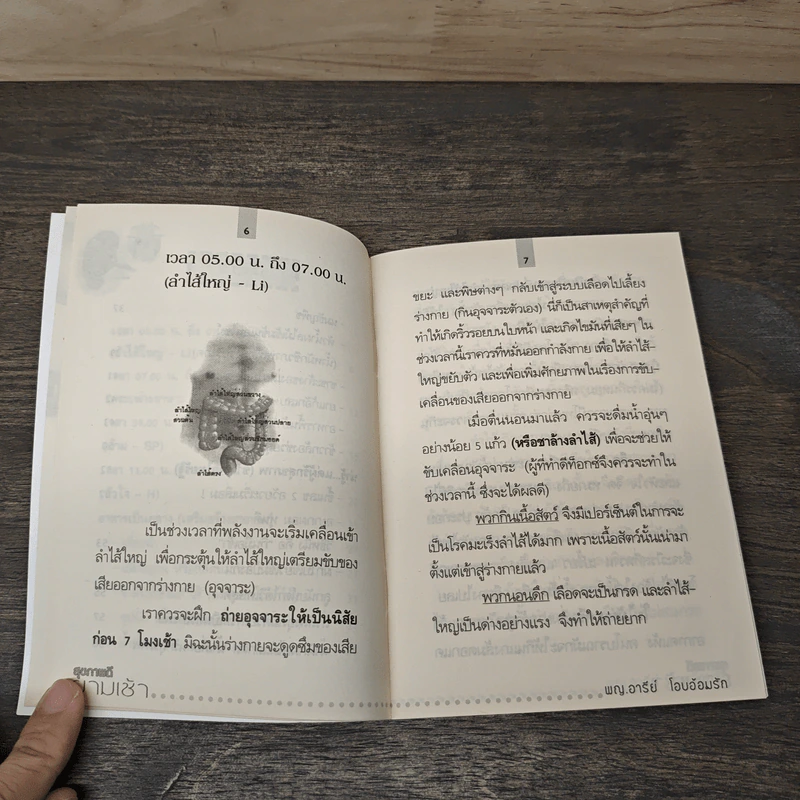 6
เวลา 05.00 น. ถึง 07.00 น.
(ลำไส้ใหญ่ - Li)
ลำไส้ใหญ่ตามขวาง
ลำไส้ใหญ่
ส่วนต้น
ลำไส้ใหญ่ส่วนปลาย
ลำไส้ตรง
เป็นช่วงเวลาที่พลังงานจะเริ่มเคลื่อนเข้า
ลำไส้ใหญ่ เพื่อกระตุ้นให้ลำไส้ใหญ่เตรียมขับของ
เสียออกจากร่างกาย (อุจจาระ)
เราควรจะฝึก ถ่ายอุจจาระให้เป็นนิสัย
ก่อน 7 โมงเช้า มิฉะนั้นร่างกายจะดูดซึมของเสีย
สุขภาพดี
ยามเช้า
7
ขยะ และพิษต่างๆ กลับเข้าสู่ระบบเลือดไปเลี้ยง
ร่างกาย (กินอุจจาระตัวเอง) นี่ก็เป็นสาเหตุสำคัญที่
ทำให้เกิดริ้วรอยบนใบหน้า และเกิดไขมันที่เสียๆ ใน
ช่วงเวลานี้เราควรที่หมั่นออกกำลังกาย เพื่อให้ลำไส้-
ใหญ่ขยับตัว และเพื่อเพิ่มศักยภาพในเรื่องการขับ-
เคลื่อนของเสียออกจากร่างกาย
เมื่อตื่นนอนมาแล้ว ควรจะดื่มน้ำอุ่นๆ
อย่างน้อย 5 แก้ว (หรือชาล้างลำไส้) เพื่อจะช่วยให้
ขับเคลื่อนอุจจาระ (ผู้ที่ทำดีท็อกซ์จึงควรจะทำใน
ช่วงเวลานี้ ซึ่งจะได้ผลดี)
พวกกินเนื้อสัตว์ จึงมีเปอร์เซ็นต์ในการจะ
เป็นโรคมะเร็งลำไส้ได้มาก เพราะเนื้อสัตว์นั้นเน่ามา
ตั้งแต่เข้าสู่ร่างกายแล้ว
พวกนอนดึก เลือดจะเป็นกรด และลำไส้-
ใหญ่เป็นด่างอย่างแรง จึงทำให้ถ่ายยาก
พญ.อารีย์ โอบอ้อมรัก